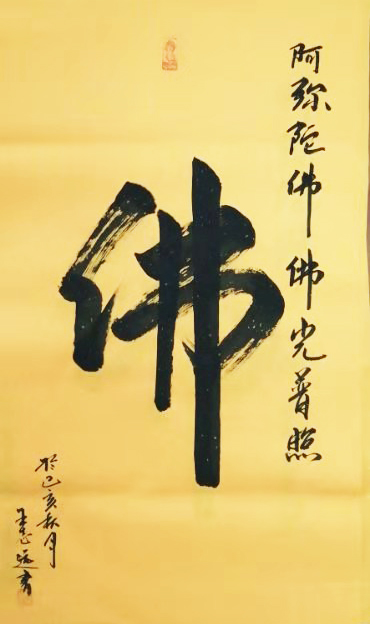 阿弥陀佛佛光普照
佛
於己亥秋月
王志远书